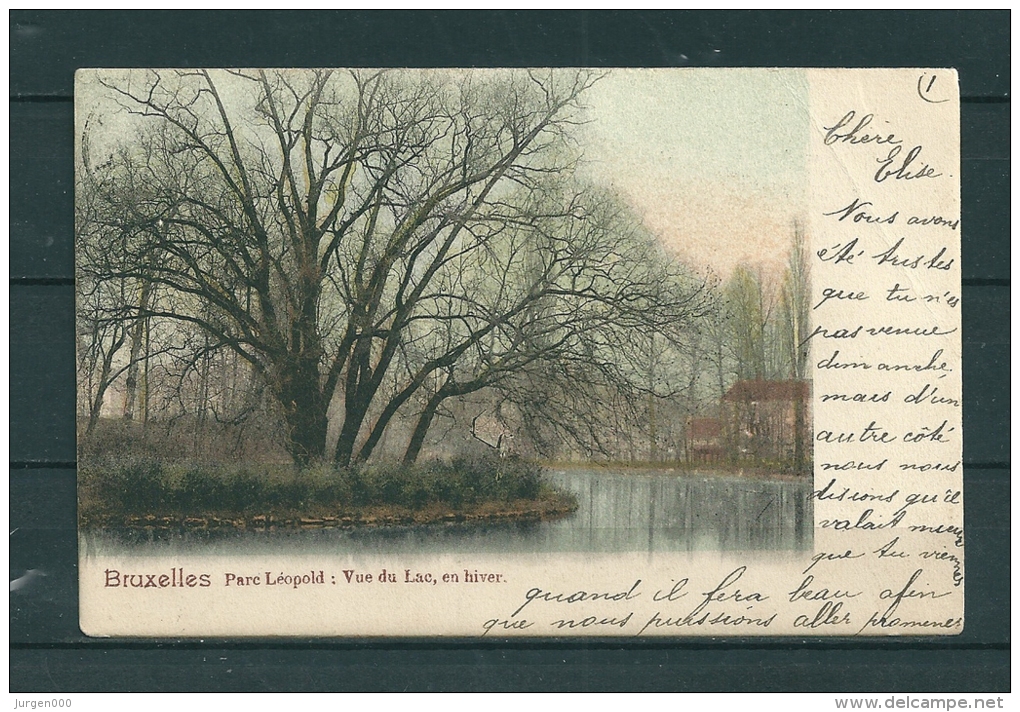 1
Chère
Elise.
Nous avons
été tristes
que tu n'es
pas venue
dimanche,
mais d'un
autre côté
nous nous
disions qu'il
valait mieux
que tu viennes
quand il fera beau afin
que nous puissions aller promener
Bruxelles Parc Léopold : Vue du Lac, en hiver.
Jurgen000
www.delcampe.net